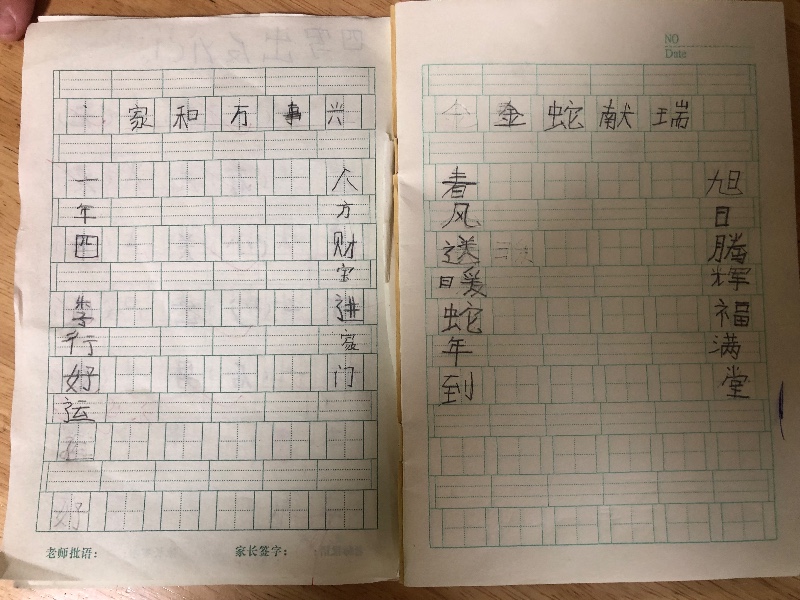 家和万事兴
个方财宝进家门
十年四季行好运
老师批语：
家长签字：
NO
Date
金蛇献瑞
旭日腾辉福满堂
春风送暖蛇年到